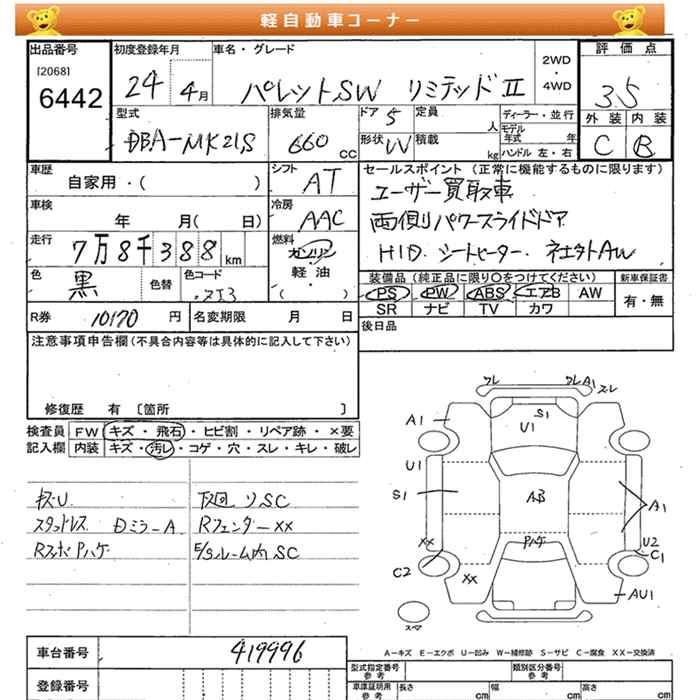 軽自動車コーナー
出品番号 初度登録年月 車名・グレード 2WD・4WD 評価点
[2068]
6442
24 4月 パレットSW リミテッドⅡ 3.5
型式 排気量 ドア 5 定員 人 ディーラー・並行 外装 内装
DBA-MK21S 660 CC 形状 W 積載 kg モデル年式 年 C B
ハンドル 左・右
車歴 シフト セールスポイント (正常に機能するものに限ります)
自家用・( ) AT ユーザー買取車
車検 冷房 両側パワースライドドア
年 月( 日) AAC HID シートヒーター
走行 燃料
7万8千388km ガソリン
軽・油
( )
色 黒 色替 色コード ZJ3
装備品 (純正品に限り○をつけてください) 新車保証書
PS PW ABS エアB AW 有・無
SR ナビ TV カワ
R券 10170 円 名変期限 月 日 後日品
注意事項申告欄(不具合内容等は具体的に記入して下さい)
修復歴 有 [箇所 ]
検査員 FW キズ・飛石・ヒビ割・リペア跡・×要
記入欄 内装 キズ・汚レ・コゲ・穴・スレ・キレ・破レ
下回 サSC
スタッドレス Dミラー A Rフェンダー XX
E/Gルーム内 SC
ワレ ワレ A1 スレ
A1 S1
U1
U1
S1 AB A1
XX Pハゲ U2
C1
C2 XX
AU1
スペア
A-キズ E-エクボ U-凹み W-補修跡 S-サビ C-腐食 XX-交換済
車台番号 419996
登録番号
型式指定番号 参考 類別区分番号 参考
車庫証明用 参考 長さ cm 幅 cm 高さ cm